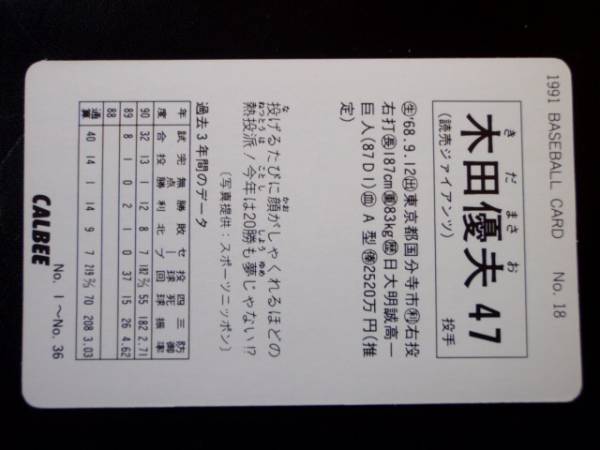 1991 BASEBALL CARD No. 18
きだ まさお
木田優夫 47
(読売ジャイアンツ) 投手
㊤'68.9.12㊥東京都国分寺市㊒右投
右打㊐187cm㊑83kg㊕日大明誠高一
巨人(87D1)㊋A型㊝2520万円(推
定)
投げるたびに顔がしゃくれるほどの
熱投派!今年は20勝も夢じゃない!?
(写真提供:スポーツニッポン)
過去3年間のデータ
年度 試合 完投 無点勝 勝利 敗北 セーブ 投球回 四死球 三振 防御率
90 32 13 1 12 8 7 182 2/3 55 182 2.71
89 8 1 0 2 1 0 37 15 26 4.62
88
通算 40 14 1 14 9 7 219 2/3 70 208 3.03
CALBEE No. 1〜No. 36